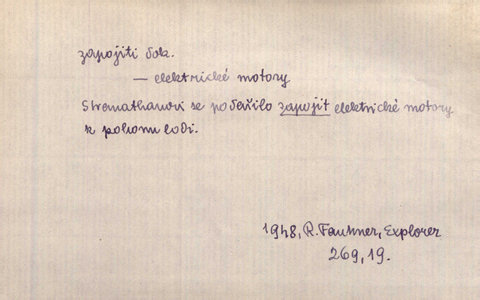 zapojiti dok.
— elektrické motory
se podařilo zapojit elektrické motory
k pohonu lodi.
1948, R. Faukner, Explorer
269, 19.